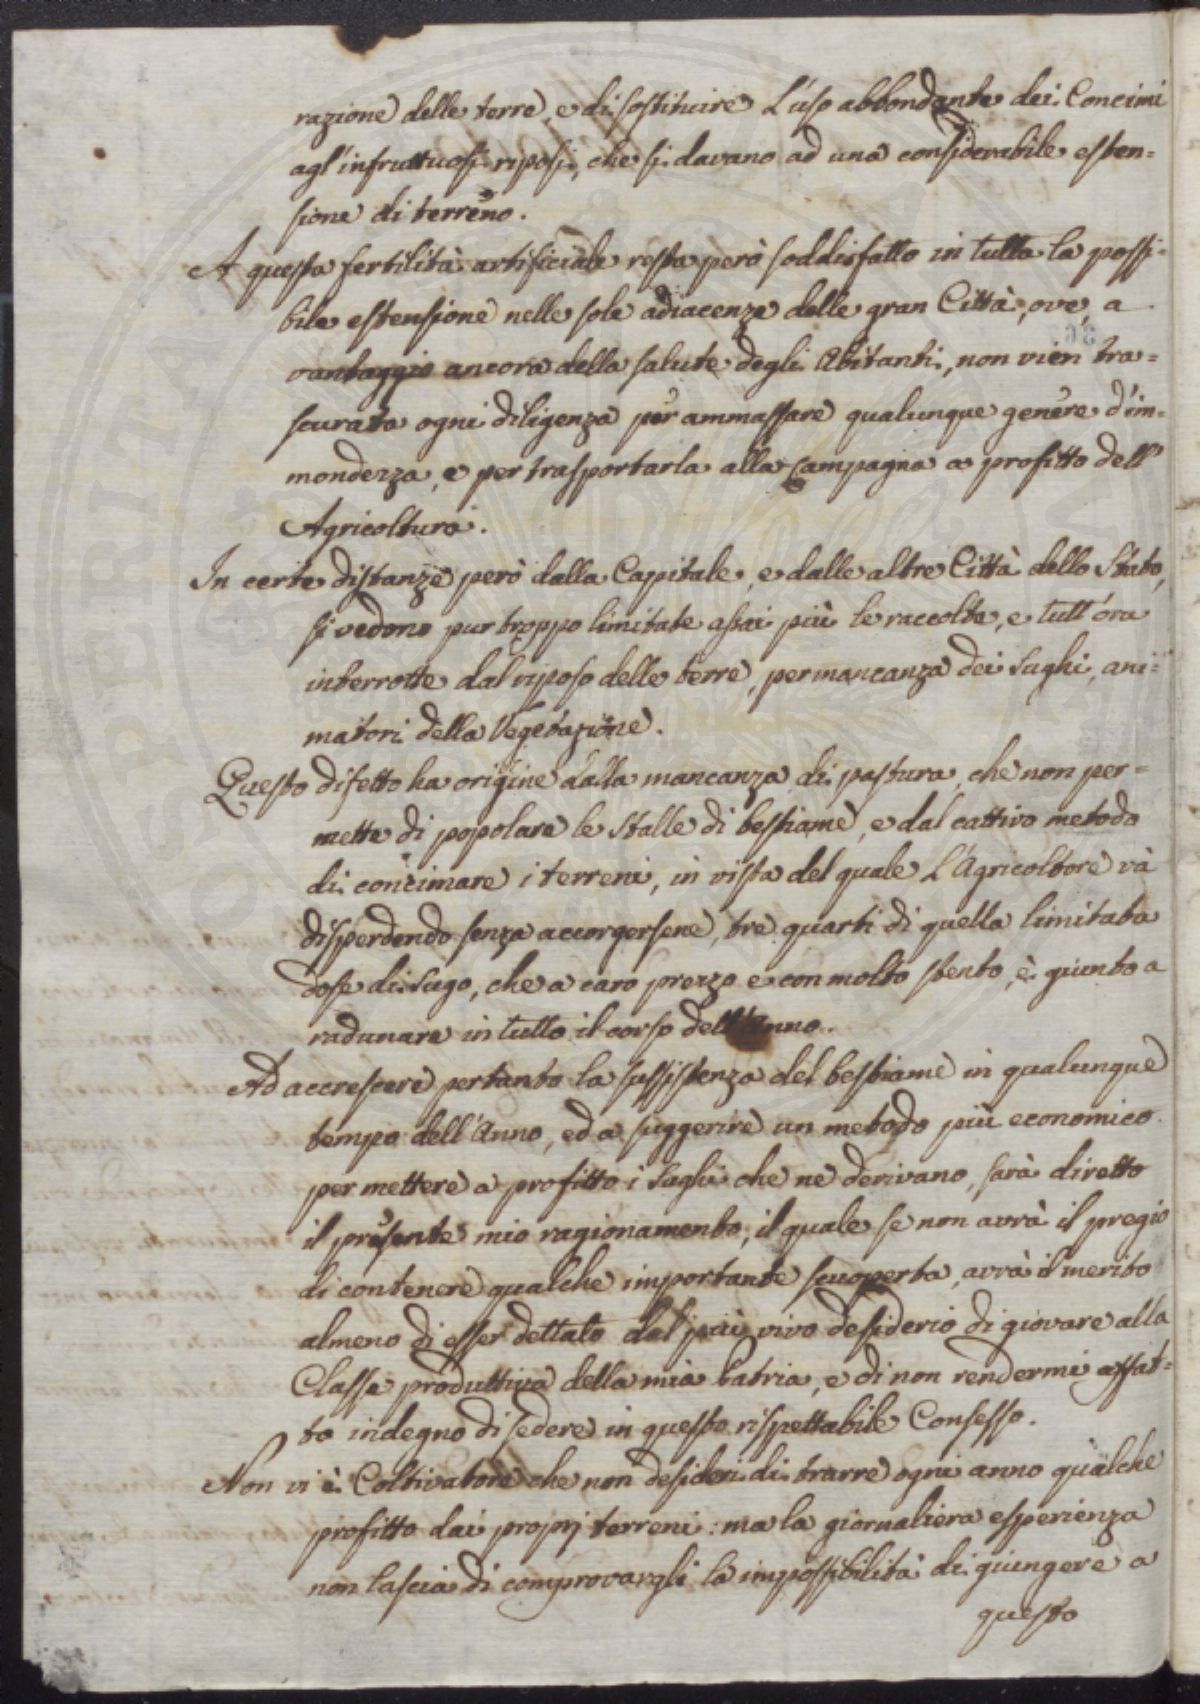 razione delle terre, e di sostituire L'uso abbondante dei Concimi
agl'infruttuosi riposi, che si davano ad una considerabile esten=
sione di terreno.
A questa fertilità artificiale resta però soddisfatto in tutta la possi=
bile estensione nelle sole adiacenze delle gran Città, ove, a
vantaggio ancora della salute degli Abitanti, non vien tra=
scurata ogni diligenza per ammassare qualunque genere d'im=
mondezza, e per trasportarla alla Campagna a profitto dell'
Agricoltura.
In certe distanze però dalla Capitale, e dalle altre Città dello Stato,
si vedono pur troppo limitate assai più le raccolte, e tutt'ora
interrotte dal riposo delle terre, per mancanza dei Sughi, ani=
matori della Vegetazione.
Questo difetto ha origine dalla mancanza di pastura, che non per=
mette di popolare le Stalle di bestiame, e dal cattivo metodo
di concimare i terreni, in vista del quale L'Agricoltore và
disperdendo senza accorgersene, tre quarti di quella limitata
dose di Sugo, che a caro prezzo e con molto stento, è giunto a
radunare in tutto il corso dell'Anno.
Ad accrescere pertanto la sussistenza del bestiame in qualunque
tempo dell'Anno, ed a suggerire un metodo più economico
per mettere a profitto i Sughi che ne derivano, sarà diretto
il presente mio ragionamento, il quale se non avrà il pregio
di contenere qualche importante scuoperta, avrà il merito
almeno di esser dettato dal più vivo desiderio di giovare alla
Classe produttiva della mia Patria, e di non rendermi affat=
to indegno di sedere in questo rispettabile Consesso.
Non vi è Coltivatore che non desideri di trarre ogni anno qualche
profitto dai proprj terreni: ma la giornaliera esperienza
non lascia di comprovargli la impossibilità di giungere a
questo